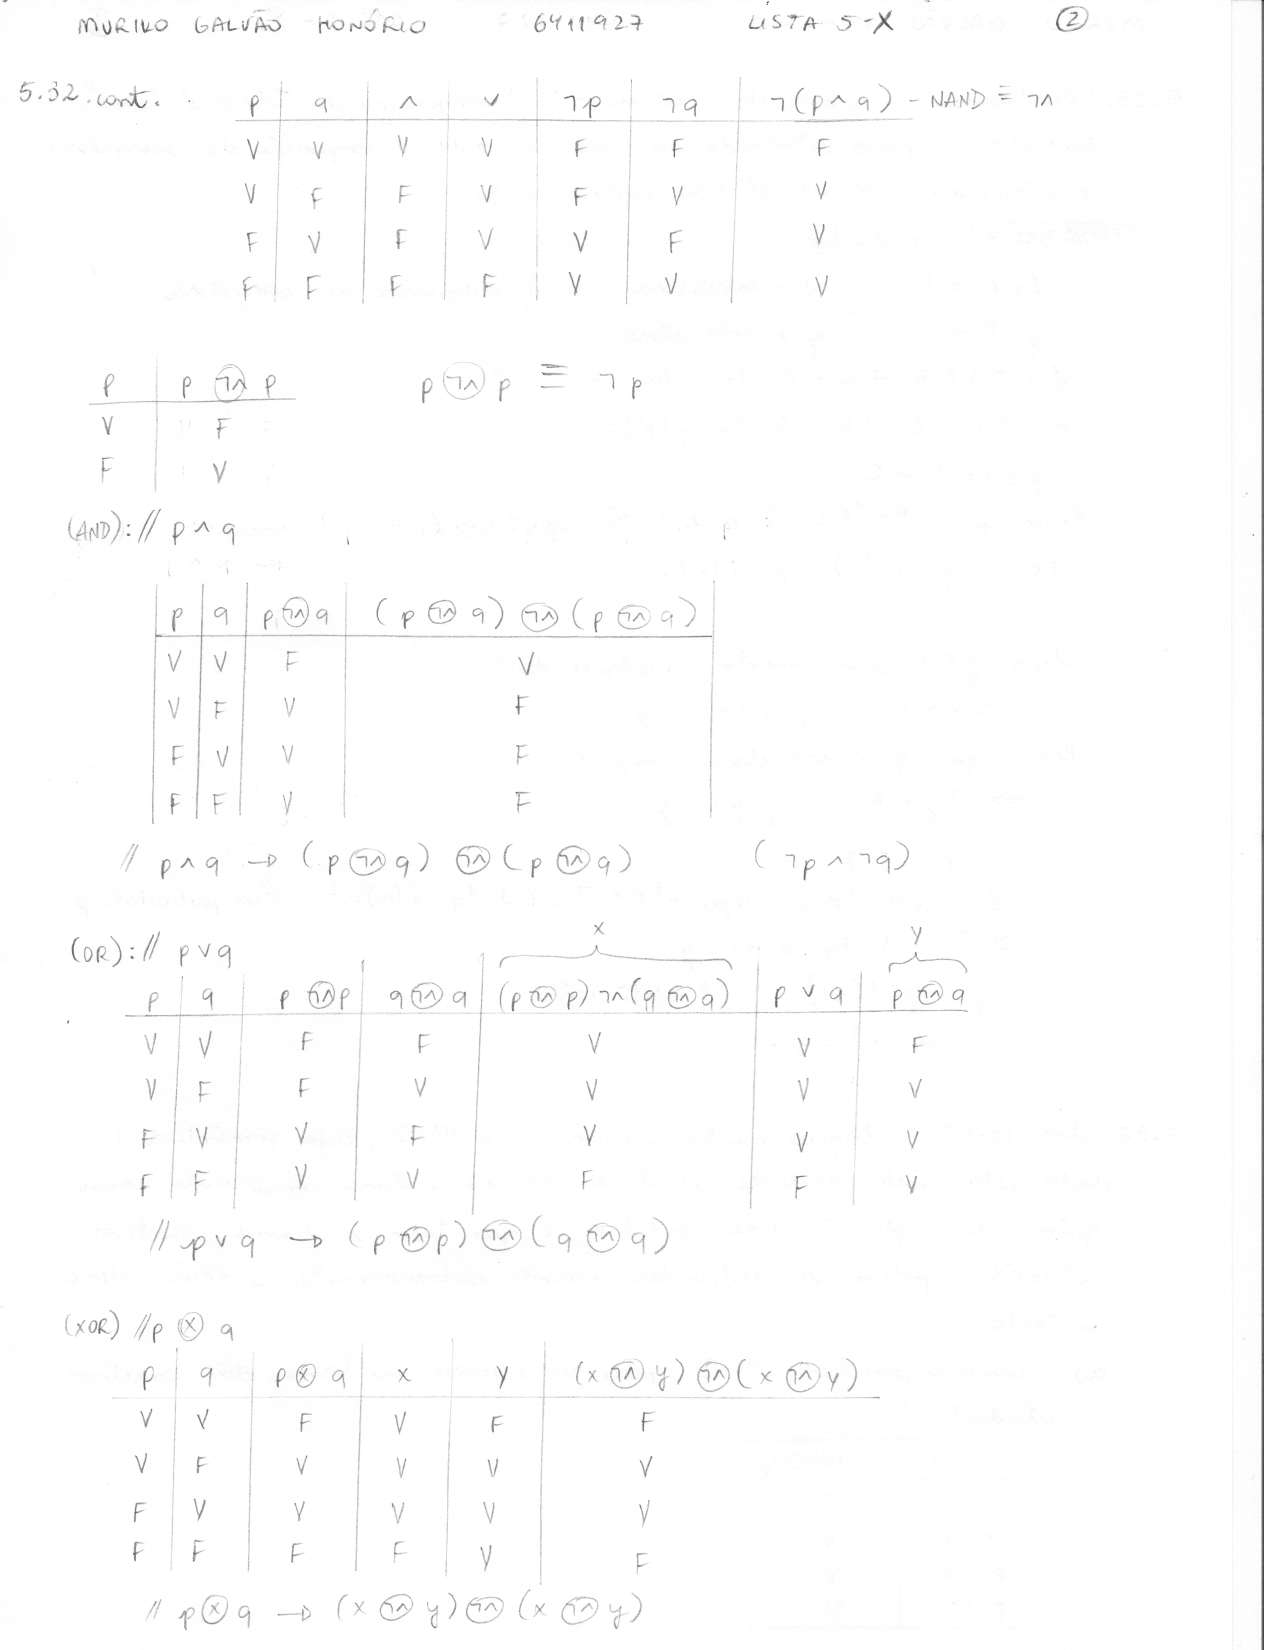 MURILO GALVÃO HONÓRIO 6411927 LISTA 5-X 2
5.32. cont. p q ∧ ∨ ¬p ¬q ¬(p∧q) - NAND ≡ ¬∧
V V V V F F F
V F F V F V V
F V F V V F V
F F F F V V V
p p ¬∧ p p ¬∧ p ≡ ¬p
V F
F V
(AND): // p∧q
p q p ¬∧ q (p ¬∧ q) ¬∧ (p ¬∧ q)
V V F V
V F V F
F V V F
F F V F
// p∧q → (p ¬∧ q) ¬∧ (p ¬∧ q) (¬p ∧ ¬q)
x y
(OR): // p∨q
p q p ¬∧ p q ¬∧ q (p ¬∧ p) ¬∧ (q ¬∧ q) p ∨ q p ¬∧ q
V V F F V V F
V F F V V V V
F V V F V V V
F F V V F F V
// p∨q → (p ¬∧ p) ¬∧ (q ¬∧ q)
(XOR) // p ⊗ q
p q p ⊗ q x y (x ¬∧ y) ¬∧ (x ¬∧ y)
V V F V F F
V F V V V V
F V V V V V
F F F F V F
// p ⊗ q → (x ¬∧ y) ¬∧ (x ¬∧ y)